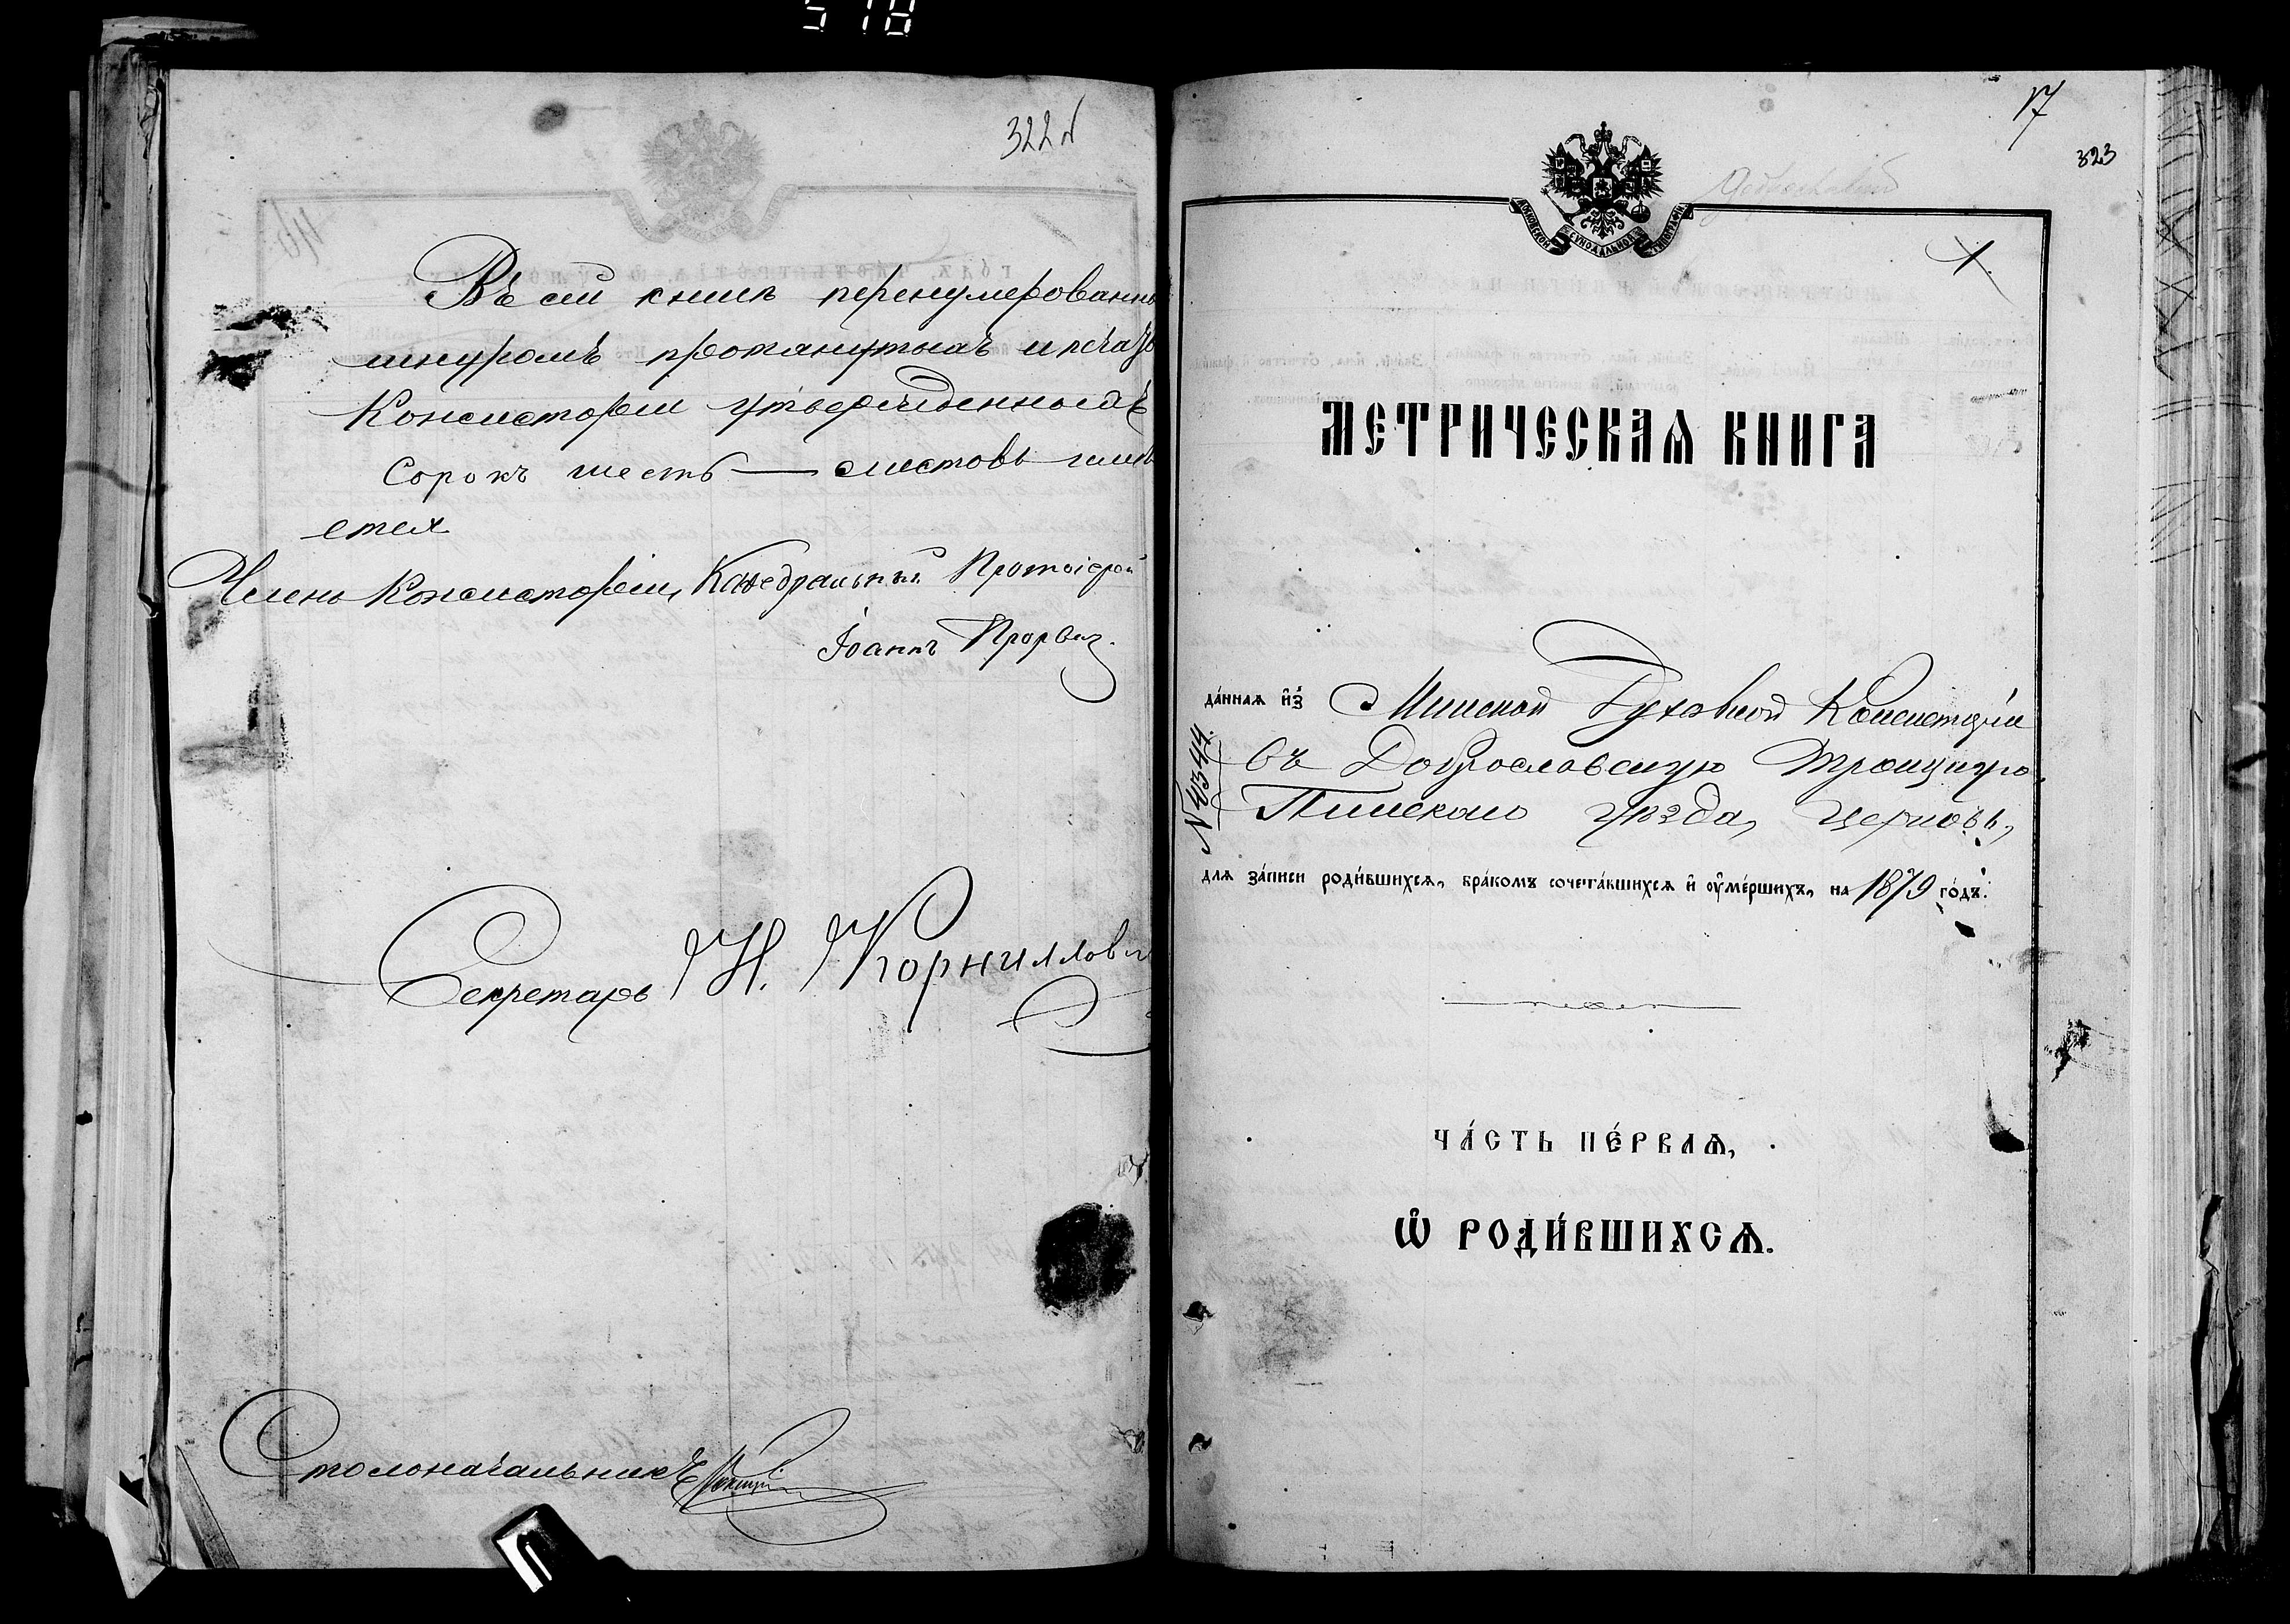 322 об
Въ сей книгѣ перенумерованны
шнуромъ протянутыхъ и печатью
Консисторіи утвержденныхъ
Сорокъ шесть — листовъ имѣ
ется
Членъ Консисторіи, Каѳедральный Протоіерей
Іоаннъ Прорвич
Секретарь Н. Корнилови
Столоначальникъ
17
323
1.
МОСКОВСКОЙ СѴНОДАЛЬНОЙ ТИПОГРАФІИ
МЕТРИЧЕСКАѦ КНИГА
да́ннаѧ и҆з̾ Минской Духовной Консисторіи
въ Доброславскую Троицкую,
Пинскаго уѣзда, церковь,
№ 4344.
для за́писи роди́вшихсѧ, бра́комъ сочета́вшихсѧ и҆ ᲂу҆ме́ршихъ, на 1879 го́дъ.
ЧА́СТЬ ПЕ́РВАѦ,
Ѡ҆ РОДИ́ВШИХСѦ.